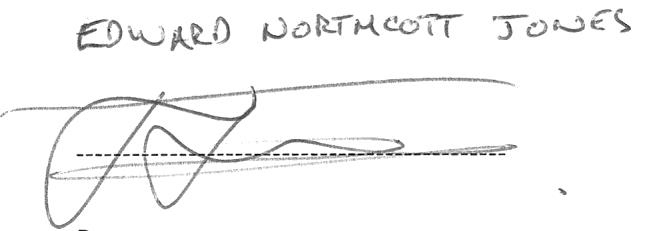 EDWARD NORTHCOTT JONES